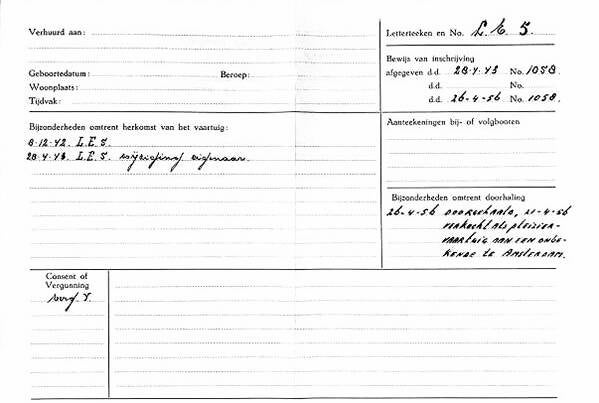 Verhuurd aan:
Geboortedatum: Beroep:
Woonplaats:
Tijdvak:
Letterteeken en No. L.E. 5.
Bewijs van inschrijving
afgegeven d.d. 28-4-43 No. 1058.
d.d. No.
d.d. 26-4-56 No. 1058.
Bijzonderheden omtrent herkomst van het vaartuig:
8-12-42. L.E.5.
28-4-43. L.E.5. wijziging eigenaar.
Aanteekeningen bij- of volgbooten
Bijzonderheden omtrent doorhaling
26-4-56 DOORGEHAALD, 21-4-56
VERKOCHT ALS PLEZIER-
VAARTUIG AAN EEN ONBE-
KENDE TE AMSTERDAM.
Consent of
Vergunning